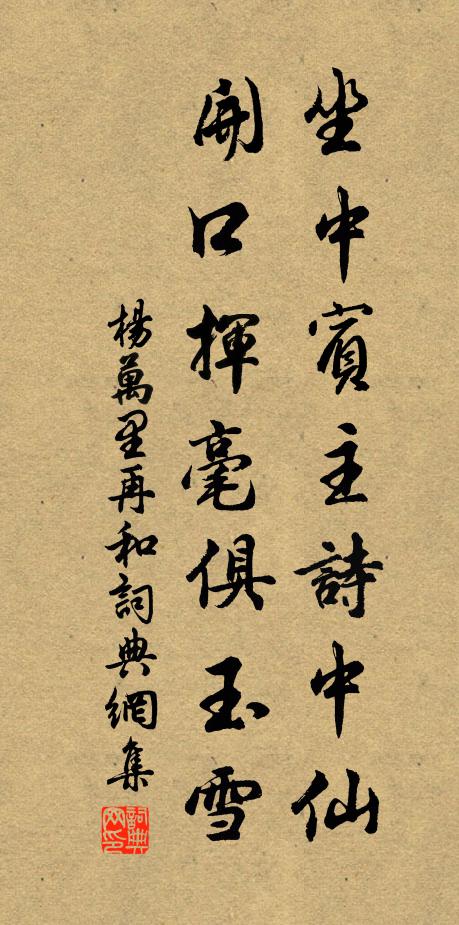 坐中賓主詩中仙
開口揮毫俱玉雪
楊萬里再和詞典網集
詞典网印